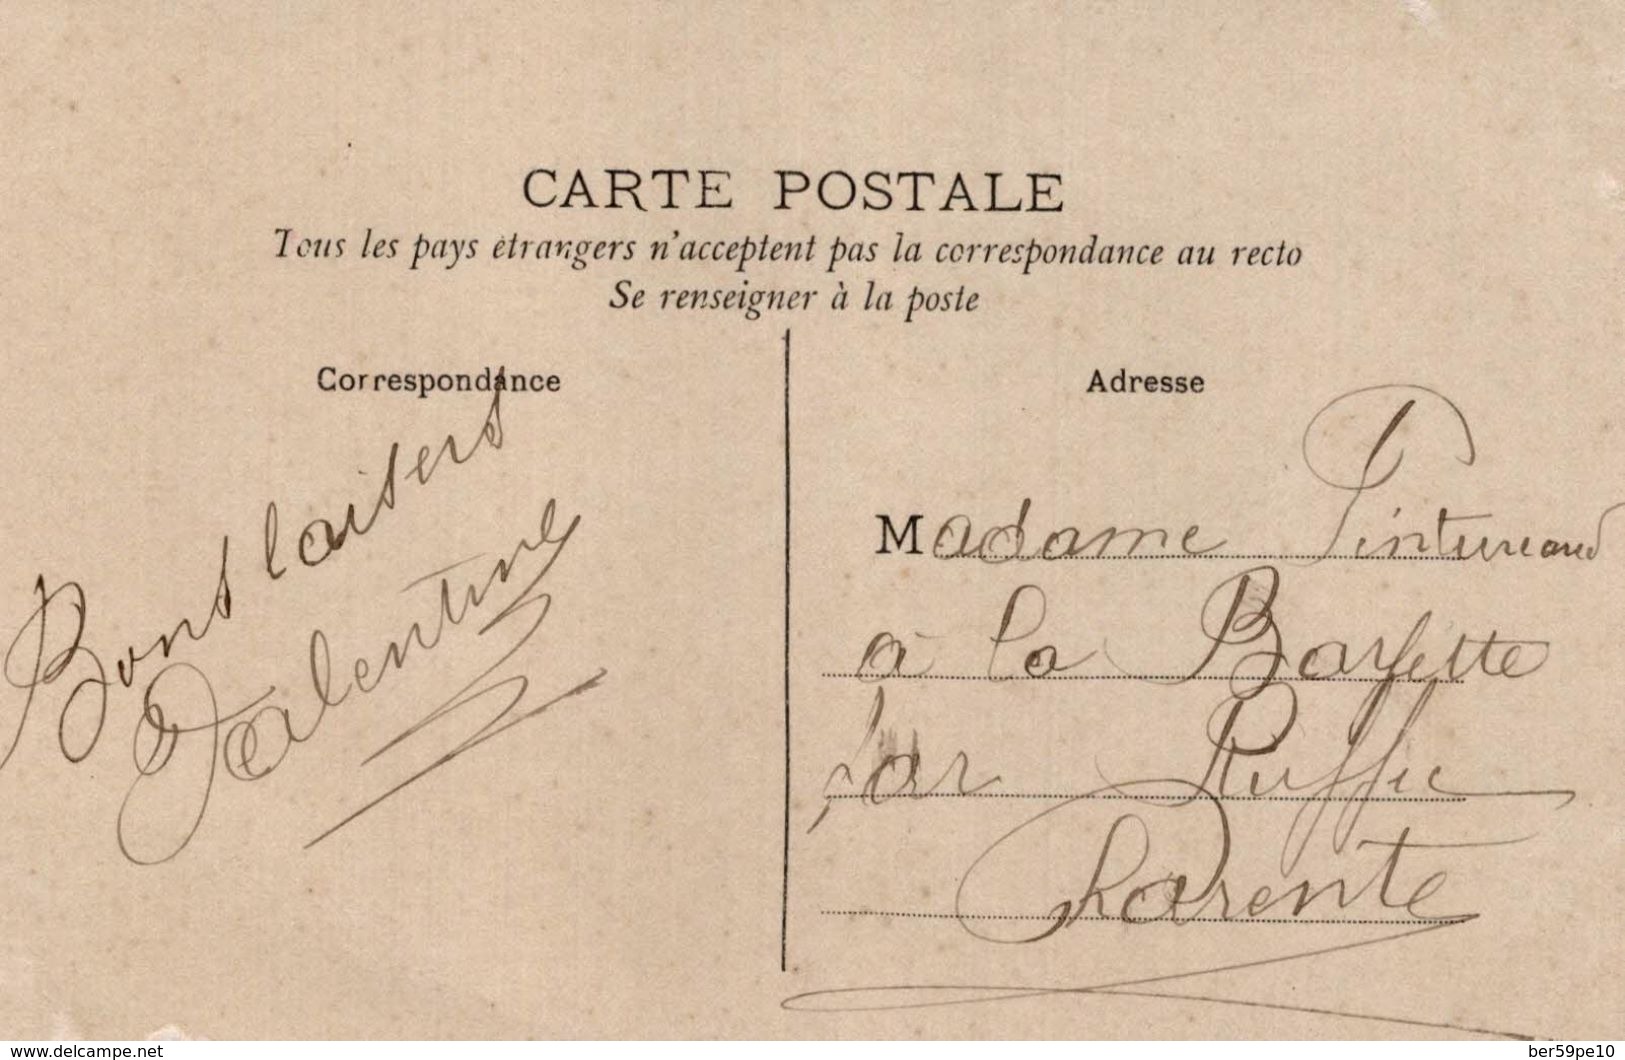 CARTE POSTALE
Tous les pays étrangers n'acceptent pas la correspondance au recto
Se renseigner à la poste
Correspondance
Bons baisers
Valentine
Adresse
Madame Pintureaud
à la Bayette
par Ruffec
Charente
www.delcampe.net
ber59pe10